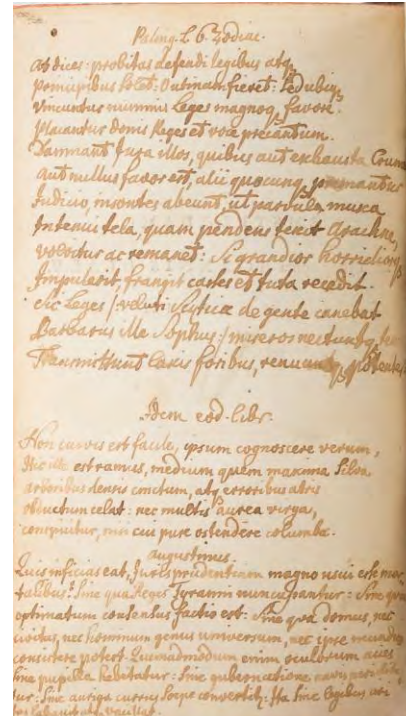 Paling. L. 6. Zodiac.
At dices: probitas defendi legibus atq
principibus solet: O utinam fieret: sed ubiq
vincuntur nummis Leges magnoq favore.
placantur donis Reges et voce precantum.
Damnant Jura illos, quibus aut exhausta Crum
aut nullus favor est, alii quocunq premantur
Judicio insontes abeunt, ut parvula musca
In tenui tela, quam pendens texit Arachne,
volvitur ac remanet: Si grandior horridiorq
Impulerit, frangit casses et tuta recedit.
Sic Leges /: veluti Scythica de gente canebat
Barbarus ille Sophus :/ miseros nectuntq
Transmittunt laxis foribus, potentes
Idem eod. libr.
Non cuivis est facile, ipsum cognoscere verum,
Hic ille est ramus, medium quem maxima Silva
arboribus densis cinctum, atq erroribus atris
obductum celat: nec multis aurea virga,
conspicitur, nisi cui pure ostendere columbae.
Augustinus.
Quis inficias eat, Juris prudentiam magno usui esse mor
talibus: Sine qua Reges Tyranni nuncupantur: Sine qua
optimatum consensus factio est: Sine qva domus, nec
civitas, nec hominum genus universum, nec ipse mundus
consistere potest. Quemadmodum enim oculorum acies
sine pupilla hebetatur: Sine gubernatione navis
tur: Sine auriga currus saepe convertitur: Ita sine legibus